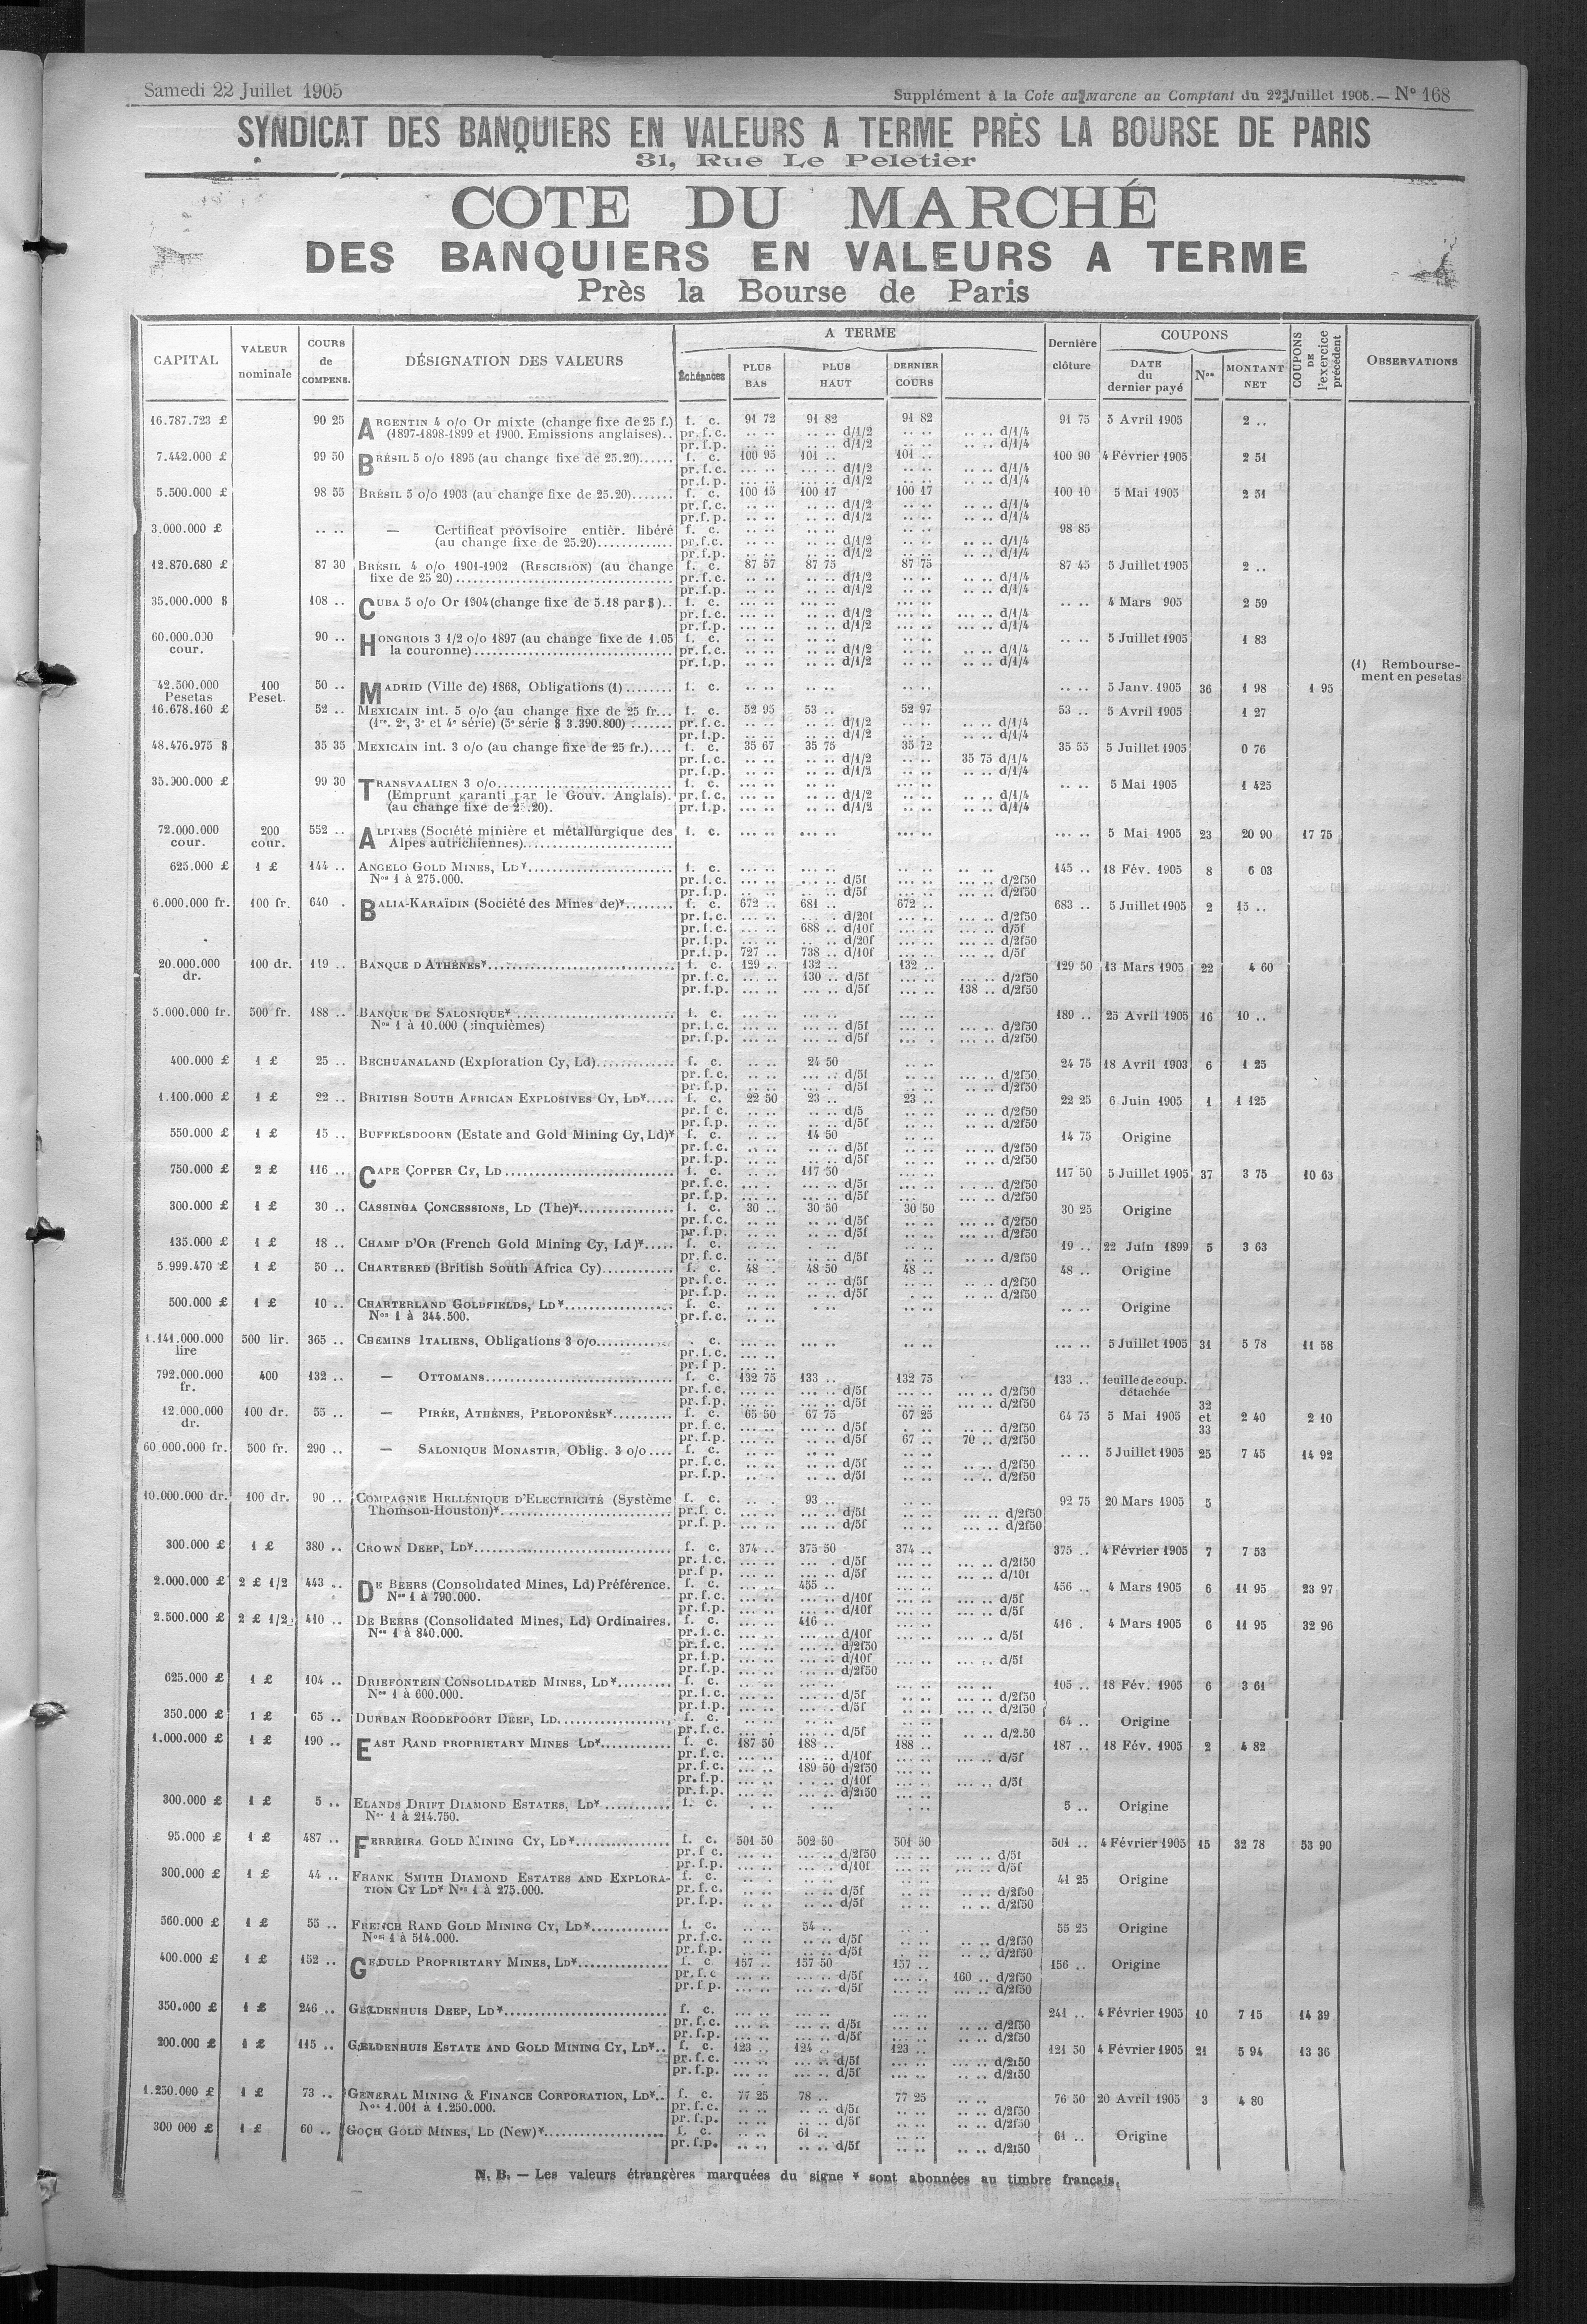 Samedi 22 Juillet 1905
Supplément à la Cote au Marché au Comptant du 22 Juillet 1905. — N° 168
SYNDICAT DES BANQUIERS EN VALEURS A TERME PRÈS LA BOURSE DE PARIS
31, Rue Le Peletier
COTE DU MARCHÉ
DES BANQUIERS EN VALEURS A TERME
Près la Bourse de Paris
CAPITAL VALEUR nominale COURS de COMPENS. DÉSIGNATION DES VALEURS A TERME Échéances PLUS BAS PLUS HAUT DERNIER COURS Dernière clôture COUPONS DATE du dernier payé Nos MONTANT NET COUPONS DE l'exercice précédent OBSERVATIONS
16.787.723 £ 90 25 ARGENTIN 4 o/o Or mixte (change fixe de 25 f.) f. c. 91 72 91 82 91 82 91 75 5 Avril 1905 2 ..
(1897-1898-1899 et 1900. Emissions anglaises).. pr.f.c. d/1/2 d/1/4
pr.f.p. d/1/2 d/1/4
7.442.000 £ 99 50 BRÉSIL 5 o/o 1895 (au change fixe de 25.20)...... f. c. 100 95 101 .. 101 .. 100 90 4 Février 1905 2 51
pr.f.c. d/1/2 d/1/4
pr.f.p. d/1/2 d/1/4
5.500.000 £ 98 55 BRÉSIL 5 o/o 1903 (au change fixe de 25.20)....... f. c. 100 15 100 17 100 17 100 10 5 Mai 1905 2 51
pr.f.c. d/1/2 d/1/4
pr.f.p. d/1/2 d/1/4
3.000.000 £ .. .. — Certificat provisoire entièr. libéré f. c. 98 85
(au change fixe de 25.20)............. pr.f.c. d/1/2 d/1/4
pr.f.p. d/1/2 d/1/4
12.870.680 £ 87 30 BRÉSIL 4 o/o 1901-1902 (RESCISION) (au change f. c. 87 57 87 75 87 75 87 45 5 Juillet 1905 2 ..
fixe de 25 20) pr.f.c. d/1/2 d/1/4
pr.f.p. d/1/2 d/1/4
35.000.000 $ 108 .. CUBA 5 o/o Or 1904 (change fixe de 5.18 par $).. f. c. .. .. 4 Mars 905 2 59
pr.f.c. d/1/2 d/1/4
pr.f.p. d/1/2 d/1/4
60.000.000 cour. 90 .. HONGROIS 3 1/2 o/o 1897 (au change fixe de 1.05 f. c. .. .. 5 Juillet 1905 1 83
la couronne) pr.f.c. d/1/2 d/1/4
pr.f.p. d/1/2 d/1/4
42.500.000 Pesetas 100 Peset. 50 .. MADRID (Ville de) 1868, Obligations (1) ........ f. c. .. .. 5 Janv. 1905 36 1 98 1 95 (1) Remboursement en pesetas
16.678.160 £ 52 .. MEXICAIN int. 5 o/o (au change fixe de 25 fr... f. c. 52 95 53 .. 52 97 53 .. 5 Avril 1905 1 27
(1re, 2e, 3e et 4e série) (5e série $ 3.390.800) ....... pr.f.c. d/1/2 d/1/4
pr.f.p. d/1/2 d/1/4
48.476.975 $ 35 35 MEXICAIN int. 3 o/o (au change fixe de 25 fr.).... f. c. 35 67 35 75 35 72 35 55 5 Juillet 1905 0 76
pr.f.c. d/1/2 35 75 d/1/4
pr.f.p. d/1/2 d/1/4
35.000.000 £ 99 30 TRANSVAALIEN 3 o/o f. c. .. .. 5 Mai 1905 1 425
(Emprunt garanti par le Gouv. Anglais). pr.f.c. d/1/2 d/1/4
(au change fixe de 25.20). pr.f.p. d/1/2 d/1/4
72.000.000 cour. 200 cour. 552 .. ALPINES (Société minière et métallurgique des f. c. .. .. 5 Mai 1905 23 20 90 17 75
Alpes autrichiennes)
625.000 £ 1 £ 144 .. ANGELO GOLD MINES, LD* f. c. 145 .. 18 Fév. 1905 8 6 03
Nos 1 à 275.000. pr.f.c. d/5f d/2f50
pr.f.p. d/5f d/2f50
6.000.000 fr. 100 fr. 640 . BALIA-KARAÏDIN (Société des Mines de)* f. c. 672 .. 681 .. 672 .. 683 .. 5 Juillet 1905 2 15 ..
pr.f.c. d/20f d/2f50
pr.f.c. 688 .. d/10f d/5f
pr.f.p. d/20f d/2f50
pr.f.p. 727 .. 738 .. d/10f d/5f
20.000.000 dr. 100 dr. 119 .. BANQUE D'ATHÈNES* f. c. 129 .. 132 .. 132 .. 129 50 13 Mars 1905 22 4 60
pr.f.c. 130 .. d/5f d/2f50
pr.f.p. d/5f 138 .. d/2f50
5.000.000 fr. 500 fr. 188 .. BANQUE DE SALONIQUE* f. c. 189 .. 25 Avril 1905 16 10 ..
Nos 1 à 10.000 (cinquièmes) pr.f.c. d/5f d/2f50
pr.f.p. d/5f d/2f50
400.000 £ 1 £ 25 .. BECHUANALAND (Exploration Cy, Ld) f. c. 24 50 24 75 18 Avril 1903 6 1 25
pr.f.c. d/5f d/2f50
pr.f.p. d/5f d/2f50
1.100.000 £ 1 £ 22 .. BRITISH SOUTH AFRICAN EXPLOSIVES CY, LD* f. c. 22 50 23 .. 23 .. 22 25 6 Juin 1905 1 1 125
pr.f.c. d/5 d/2f50
pr.f.p. d/5f d/2f50
550.000 £ 1 £ 15 .. BUFFELSDOORN (Estate and Gold Mining Cy, Ld)* f. c. 14 50 14 75 Origine
pr.f.c. d/5f d/2f50
pr.f.p. d/5f d/2f50
750.000 £ 2 £ 116 .. CAPE COPPER CY, LD f. c. 117 50 117 50 5 Juillet 1905 37 3 75 10 63
pr.f.c. d/5f d/2f50
pr.f.p. d/5f d/2f50
300.000 £ 1 £ 30 .. CASSINGA CONCESSIONS, LD (The)* f. c. 30 .. 30 50 30 50 30 25 Origine
pr.f.c. d/5f d/2f50
pr.f.p. d/5f d/2f50
135.000 £ 1 £ 18 .. CHAMP D'OR (French Gold Mining Cy, Ld)* f. c. 19 .. 22 Juin 1899 5 3 63
pr.f.c. d/5f d/2f50
5.999.470 £ 1 £ 50 .. CHARTERED (British South Africa Cy) f. c. 48 . 48 50 48 .. 48 .. Origine
pr.f.c. d/5f d/2f50
pr.f.p. d/5f d/2f50
500.000 £ 1 £ 10 .. CHARTERLAND GOLDFIELDS, LD* f. c. .. .. Origine
Nos 1 à 344.500. pr.f.c.
1.141.000.000 lire 500 lir. 365 .. CHEMINS ITALIENS, Obligations 3 o/o . c. .. .. 5 Juillet 1905 31 5 78 11 58
pr.f.c.
pr.f p.
792.000.000 fr. 400 132 .. — OTTOMANS f. c. 132 75 133 .. 132 75 133 .. feuille de coup. détachée
pr.f.c. d/5f d/2f50
pr.f.p. d/5f d/2f50
12.000.000 dr. 100 dr. 55 .. — PIRÉE, ATHÈNES, PELOPONÈSE* f. c. 65 50 67 75 67 25 64 75 5 Mai 1905 32 et 33 2 40 2 10
pr.f.c. d/5f d/2f50
pr.f.p. d/5f 67 .. 70 .. d/2f50
60.000.000 fr. 500 fr. 290 .. — SALONIQUE MONASTIR, Oblig. 3 o/o .... f. c. .. .. 5 Juillet 1905 25 7 45 14 92
pr.f.c. d/5f d/2f50
pr.f.p. d/5f d/2f50
10.000.000 dr. 100 dr. 90 .. COMPAGNIE HELLÉNIQUE D'ELECTRICITÉ (Système f. c. 93 .. 92 75 20 Mars 1905 5
Thomson-Houston)* pr.f.c. d/5f d/2f50
pr.f.p. d/5f d/2f50
300.000 £ 1 £ 380 .. CROWN DEEP, LD* f. c. 374 .. 375 50 374 .. 375 .. 4 Février 1905 7 7 53
pr.f.c. d/5f d/2f50
pr.f p. d/5f d/10f
2.000.000 £ 2 £ 1/2 443 .. DE BEERS (Consolidated Mines, Ld) Préférence. f. c. 455 .. 456 .. 4 Mars 1905 6 11 95 23 97
Nos 1 à 790.000. pr.f.c. d/10f d/5f
pr.f.p. d/10f d/5f
2.500.000 £ 2 £ 1/2 410 .. DE BEERS (Consolidated Mines, Ld) Ordinaires. f. c. 416 .. 416 . 4 Mars 1905 6 11 95 32 96
Nos 1 à 840.000. pr.f.c. d/10f d/5f
pr.f.c. d/2f50
pr.f.p. d/10f d/5f
pr.f.p. d/2f50
625.000 £ 1 £ 104 .. DRIEFONTEIN CONSOLIDATED MINES, LD* f. c. 105 .. 18 Fév. 1905 6 3 61
Nos 1 à 600.000. pr.f.c. d/5f d/2f50
pr.f.p. d/5f d/2f50
350.000 £ 1 £ 65 .. DURBAN ROODEPOORT DEEP, LD f. c. 64 .. Origine
pr.f.c. d/5f d/2.50
1.000.000 £ 1 £ 190 .. EAST RAND PROPRIETARY MINES LD* f. c. 187 50 188 .. 188 .. 187 .. 18 Fév. 1905 2 4 82
pr.f.c. d/10f d/5f
pr.f.c. 189 50 d/2f50
pr.f.p. d/10f d/5f
pr.f.p. d/2f50
300.000 £ 1 £ 5 .. ELANDS DRIFT DIAMOND ESTATES, LD* f. c. 5 .. Origine
Nos 1 à 214.750.
95.000 £ 1 £ 487 .. FERREIRA GOLD MINING CY, LD* f. c. 501 50 502 50 501 50 501 .. 4 Février 1905 15 32 78 53 90
pr.f c. d/2f50 d/5f
pr.f.p. d/10f d/5f
300.000 £ 1 £ 44 .. FRANK SMITH DIAMOND ESTATES AND EXPLORA- f. c. 41 25 Origine
TION CY LD* Nos 1 à 275.000. pr.f.c. d/5f d/2f50
pr.f.p. d/5f d/2f50
560.000 £ 1 £ 55 .. FRENCH RAND GOLD MINING CY, LD* f. c. 54 .. 55 25 Origine
Nos 1 à 514.000. pr.f.c. d/5f d/2f50
pr.f.p. d/5f d/2f50
400.000 £ 1 £ 152 .. GEDULD PROPRIETARY MINES, LD* f. c 157 .. 157 50 157 .. 156 .. Origine
pr.f.c d/5f 160 .. d/2f50
pr.f.p. d/5f d/2f50
350.000 £ 1 £ 246 .. GELDENHUIS DEEP, LD* f. c. 241 .. 4 Février 1905 10 7 15 14 39
pr.f.c. d/5f d/2f50
pr.f.p. d/5f d/2f50
200.000 £ 1 £ 115 .. GELDENHUIS ESTATE AND GOLD MINING CY, LD*.. f. c. 123 .. 124 .. 123 .. 121 50 4 Février 1905 21 5 94 13 36
pr.f.c. d/5f d/2f50
pr.f.p. d/5f d/2f50
1.250.000 £ 1 £ 73 .. GENERAL MINING & FINANCE CORPORATION, LD*.. f. c. 77 25 78 .. 77 25 76 50 20 Avril 1905 3 4 80
Nos 1.001 à 1.250.000. pr.f.c. d/5f d/2f50
pr.f.p. d/5f d/2f50
300 000 £ 1 £ 60 .. GOCH GOLD MINES, LD (New)* f. c. 61 .. 61 .. Origine
pr.f.p. d/5f d/2f50
N. B. — Les valeurs étrangères marquées du signe * sont abonnées au timbre français.